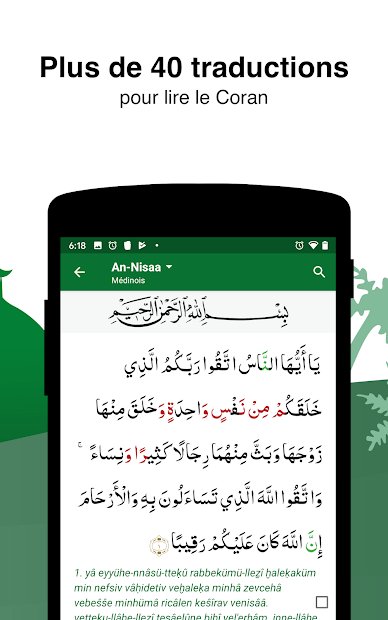 Plus de 40 traductions
pour lire le Coran
6:18
An-Nisaa
Médinois
بِسْمِ اللَّهِ الرَّحْمَٰنِ الرَّحِيمِ
يَا أَيُّهَا النَّاسُ اتَّقُوا رَبَّكُمُ الَّذِي
خَلَقَكُمْ مِنْ نَفْسٍ وَاحِدَةٍ وَخَلَقَ مِنْهَا
زَوْجَهَا وَبَثَّ مِنْهُمَا رِجَالًا كَثِيرًا وَنِسَاءً ۚ
وَاتَّقُوا اللَّهَ الَّذِي تَسَاءَلُونَ بِهِ وَالْأَرْحَامَ
إِنَّ اللَّهَ كَانَ عَلَيْكُمْ رَقِيبًا ١
1. yâ eyyühe-nnâsü-tteḳû rabbekümü-lleẕî ḫaleḳaküm
min nefsiv vâḥidetiv veḫaleḳa minhâ zevcehâ
vebeŝŝe minhümâ ricâlen keŝîrav venisââ.
vetteḳu-llâhe-lleẕî tesâelûne bihî vel'erḥâm. inne-llâhe